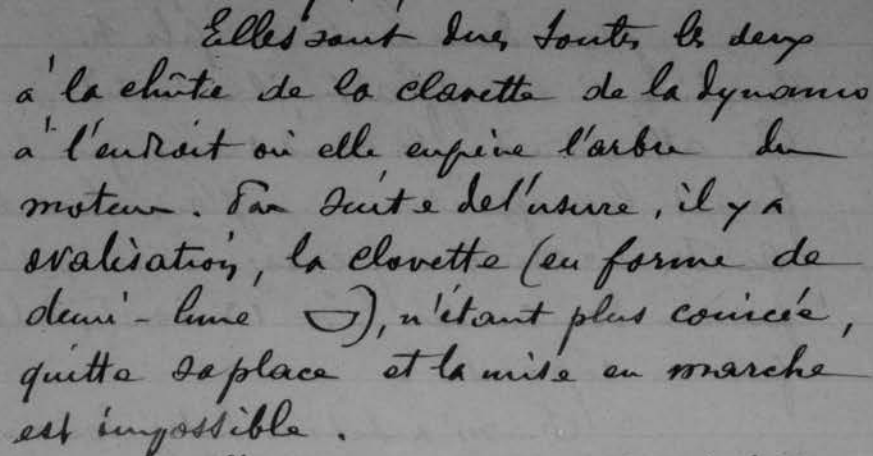 Elles sont dues toutes les deux
à la chûte de la clavette de la dynamo
à l'endroit où elle engrène l'arbre du
moteur. Par suite de l'usure, il y a
ovalisation, la clavette (en forme de
demi-lune ), n'étant plus coincée,
quitte sa place et la mise en marche
est impossible.